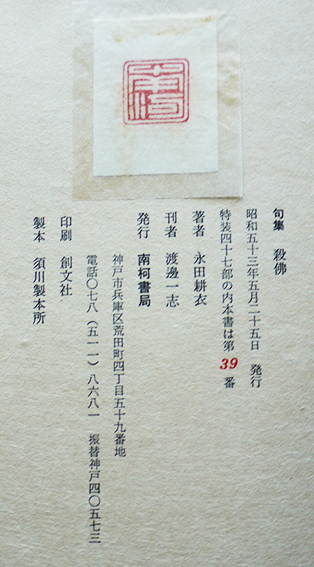 句集 殺佛
昭和五十三年五月二十五日 発行
特装四十七部の内本書は第39番
著者 永田耕衣
刊者 渡邊一志
発行 南柯書局
神戸市兵庫区荒田町四丁目五十九番地
電話〇七八(五一一)八六八一 振替神戸四〇五七三
印刷 創文社
製本 須川製本所